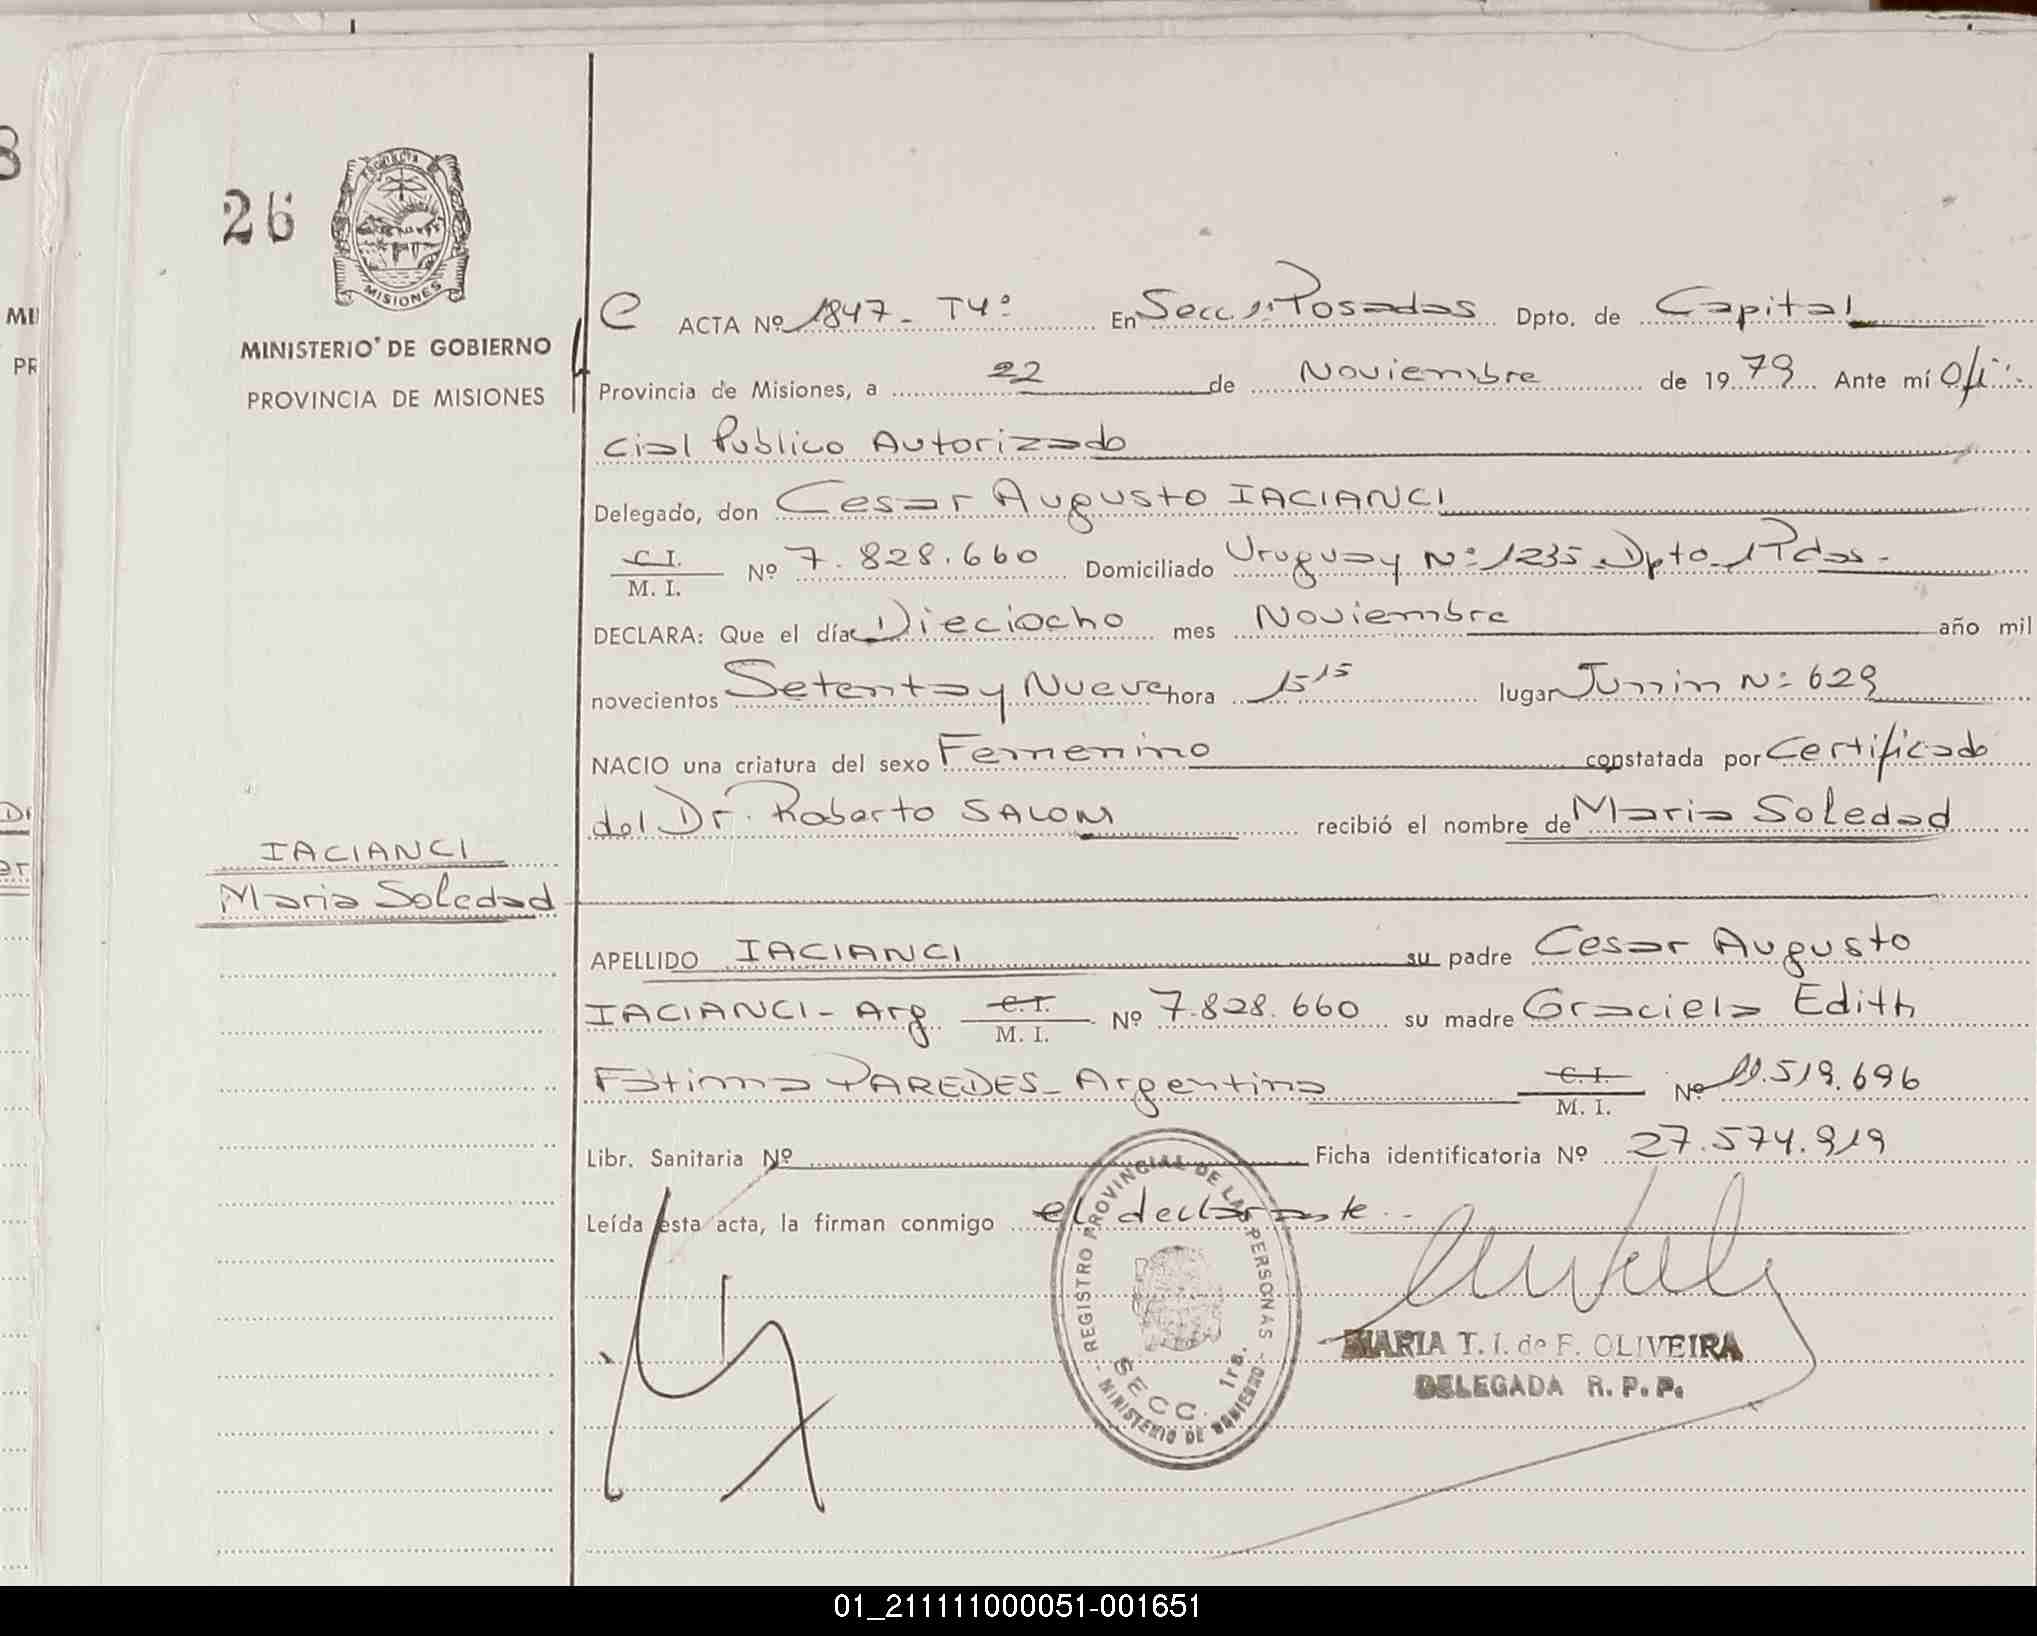 8
MI
PR
26
MISIONES
MINISTERIO DE GOBIERNO
PROVINCIA DE MISIONES
C ACTA Nº 1847 - Tº 4º En Secc 1ª Posadas Dpto. de Capital
Provincia de Misiones, a 22 de Noviembre de 1979 Ante mí Ofi-
cial Publico Autorizado
Delegado, don Cesar Augusto IACIANCI
C.I. M. I. Nº 7.828.660 Domiciliado Uruguay Nº 1235 Dpto. 1 Pdas-
DECLARA: Que el día Dieciocho mes Noviembre año mil
novecientos Setenta y Nueve hora 15 15 lugar Junin Nº 629
NACIO una criatura del sexo Femenino constatada por Certificado
del Dr. Roberto SALOM recibió el nombre de Maria Soledad
IACIANCI
Maria Soledad
APELLIDO IACIANCI su padre Cesar Augusto
IACIANCI - Arg C.I. M. I. Nº 7.828.660 su madre Graciela Edith
Fatima PAREDES - Argentina C.I. M. I. Nº 11.519.696
Libr. Sanitaria Nº Ficha identificatoria Nº 27.574.919
Leída esta acta, la firman conmigo el declarante.-
- REGISTRO PROVINCIAL DE LAS PERSONAS -
SECC. 1ra.
MINISTERIO DE GOBIERNO
MARIA T. I. de F. OLIVEIRA
DELEGADA R. P. P.
01_211111000051-001651